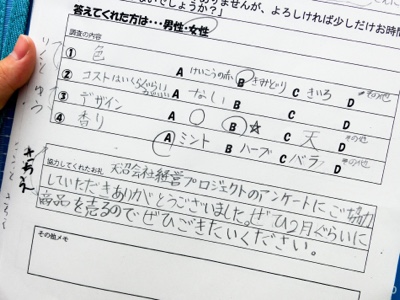 ないでしょうか？」ありませんが、よろしければ少しだけお時間
答えてくれた方は・・・男性・女性
調査の内容
① 色
A けいこうのホ B きみどり C きいろ D その他
② コストはいくらぐらい
A なし B C D
③ デザイン
A ○ B ☆ C 天 D その他
④ 香り
A ミント B ハーブ C バラ D その他
協力してくれたお礼 天沼会社経営プロジェクトのアンケートにご協力
していただきありがとうございました。ぜひ2月ぐらいに
商品を売るのでぜひごきたいください。
その他メモ